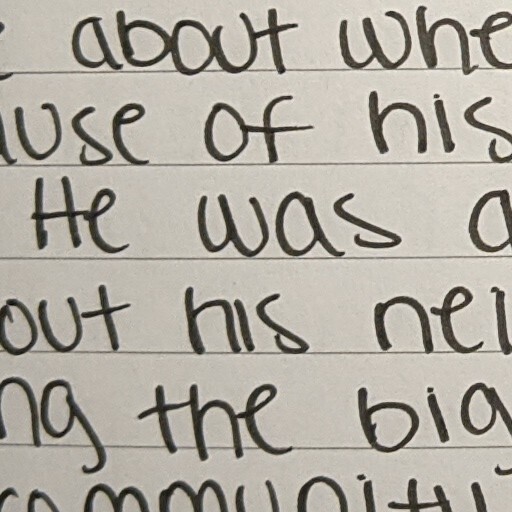 about whe
use of his
He was a
out his nei
ng the big
communiti